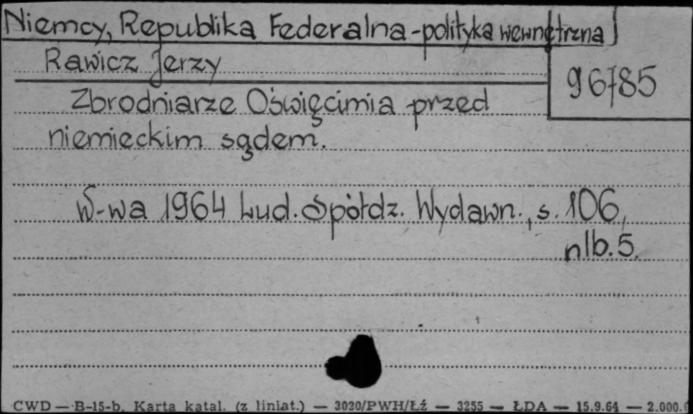 Niemcy, Republika Federalna - polityka wewnętrzna
Rawicz Jerzy
96785
Zbrodniarze Oświęcimia przed
niemieckim sądem.
W-wa 1964 Lud. Spółdz. Wydawn., s. 106,
nlb. 5.
CWD — B-15-b. Karta katal. (z liniat.) — 3020/PWH/Łź — 3255 — ŁDA — 15.9.64 — 2.000.0